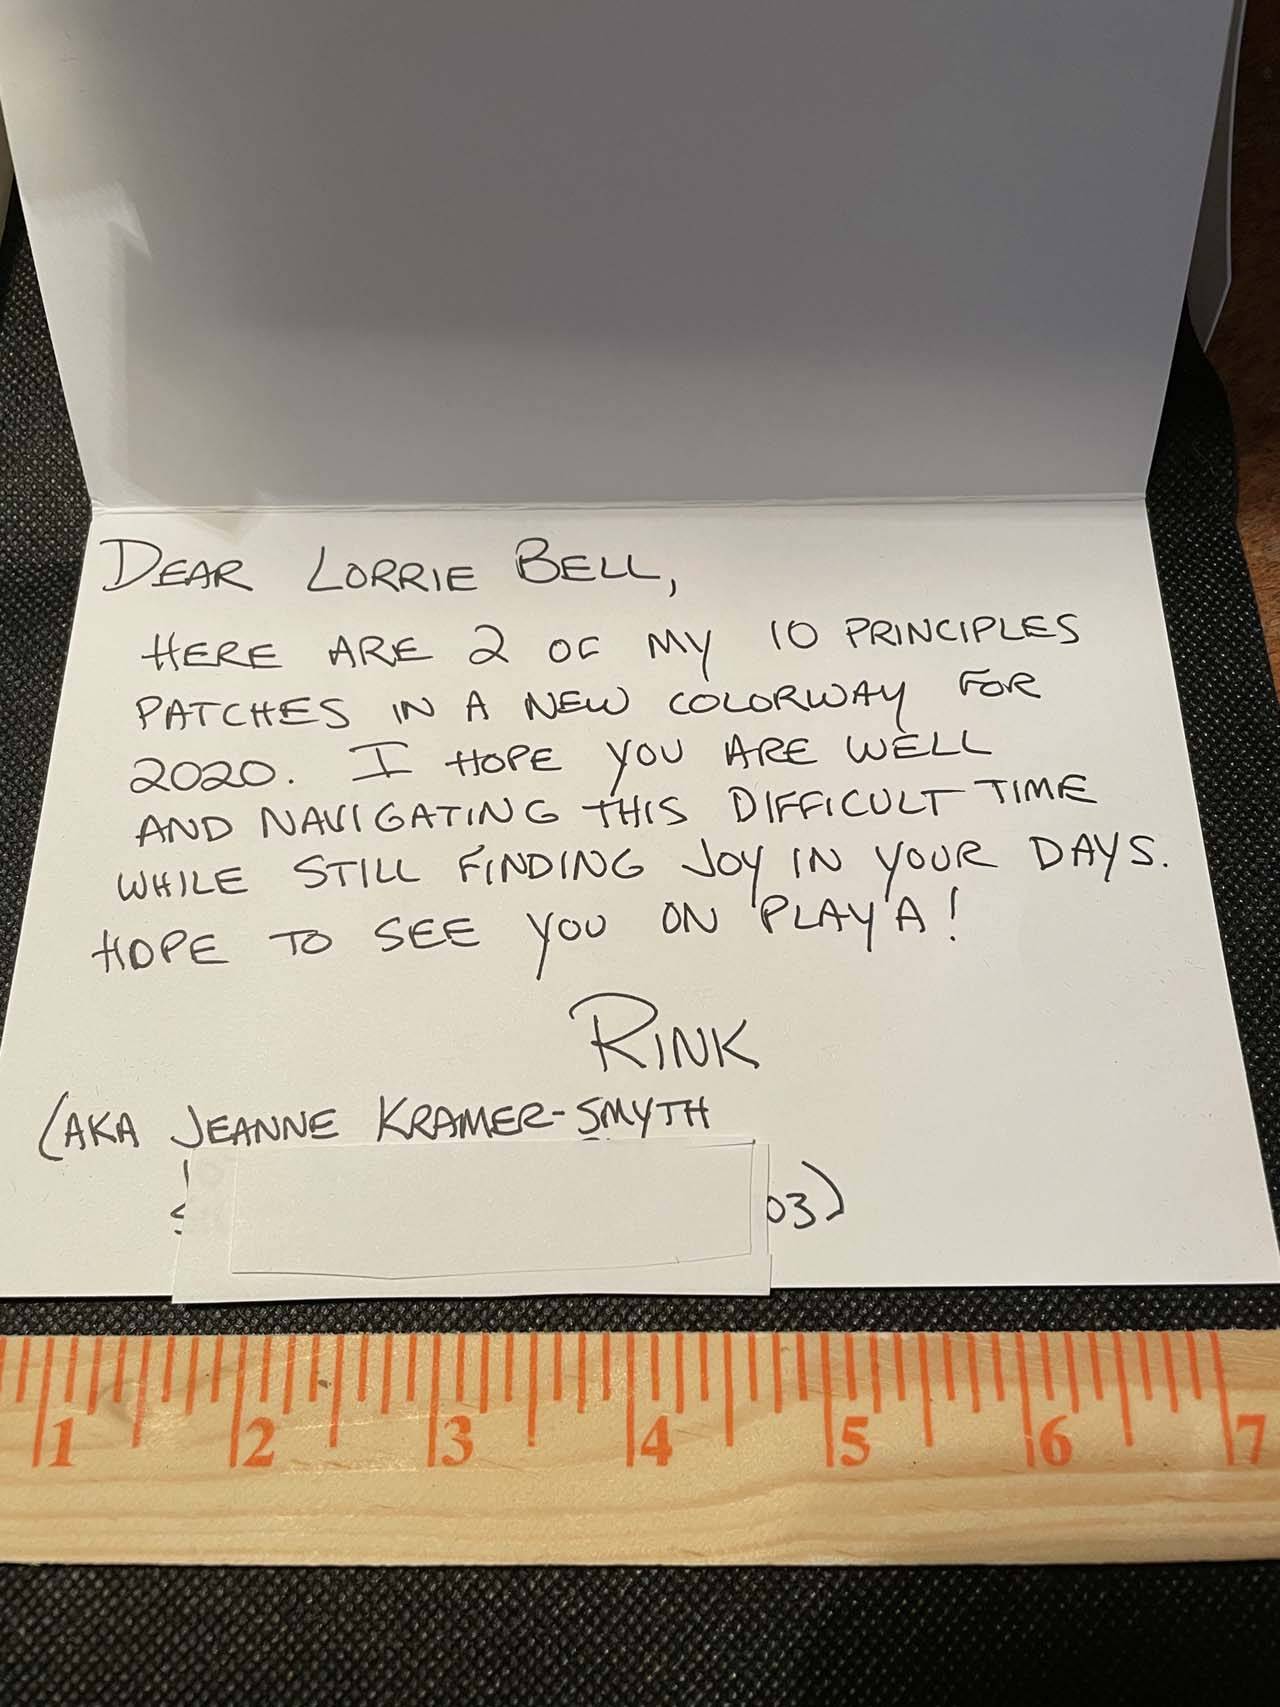 DEAR LORRIE BELL,
HERE ARE 2 OF MY 10 PRINCIPLES
PATCHES IN A NEW COLORWAY FOR
2020. I HOPE YOU ARE WELL
AND NAVIGATING THIS DIFFICULT TIME
WHILE STILL FINDING JOY IN YOUR DAYS.
HOPE TO SEE YOU ON PLAYA!
RINK
(AKA JEANNE KRAMER-SMYTH
03)
1 2 3 4 5 6 7